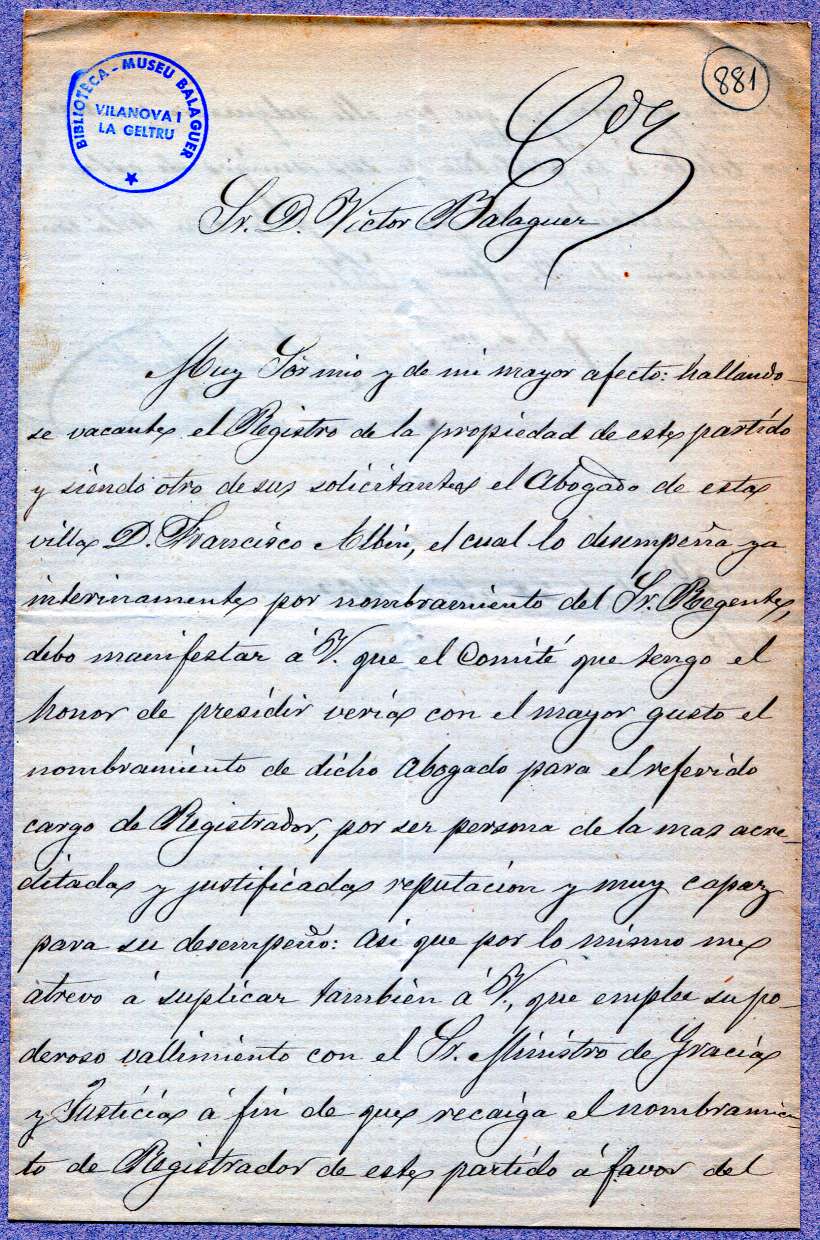 881
BIBLIOTECA - MUSEU BALAGUER
VILANOVA I
LA GELTRU
Sr. D. Victor Balaguer
Muy Sór mio y de mi mayor afecto: hallando-
se vacante el Registro de la propiedad de este partido
y siendo otro de sus solicitantes el Abogado de esta
villa D. Francisco Albin, el cual lo desempeña ya
interinamente por nombramiento del Sr. Regente,
debo manifestar á V. que el Comité que tengo el
honor de presidir veria con el mayor gusto el
nombramiento de dicho Abogado para el referido
cargo de Registrador, por ser persona de la mas acre-
ditada y justificada reputacion y muy capaz
para su desempeño: Asi que por lo mismo me
atrevo á suplicar tambien á V., que emplee su po-
deroso vallimiento con el Sr. Ministro de Gracia
y Justicia á fin de que recaiga el nombramien-
to de Registrador de este partido á favor del